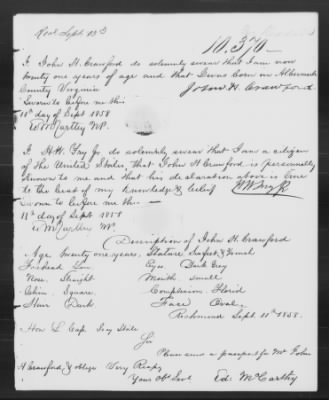 Recd Sept. 13th
10.376
I John H. Crawford do solemnly swear that I am now
twenty one years of age and that I was born in Albemarle
County Virginia
John H. Crawford
Sworn to before me this
11th day of Sept 1858
Ed McCarthy NP.
I H.W. Fry Jr do solemnly swear that I am a citizen
of the United States, that John H Crawford is personally
known to me and that his declaration above is true
to the best of my knowledge & belief
HW Fry Jr
Sworn to before me this —
11th day of Sept. 1858
Ed McCarthy NP.
Description of John H. Crawford
Age twenty one years, Stature 5 feet & inch
Forehead Low Eyes Dark Grey
Nose Straight Mouth small
Chin Square Complexion Florid
Hair Dark Face Oval
Richmond Sept. 11th 1858.
Hon L Cass Secy State
Sir
Please send a passport for Mr John
H Crawford & oblige Very Respy
Your Obt Servt
Ed: McCarthy